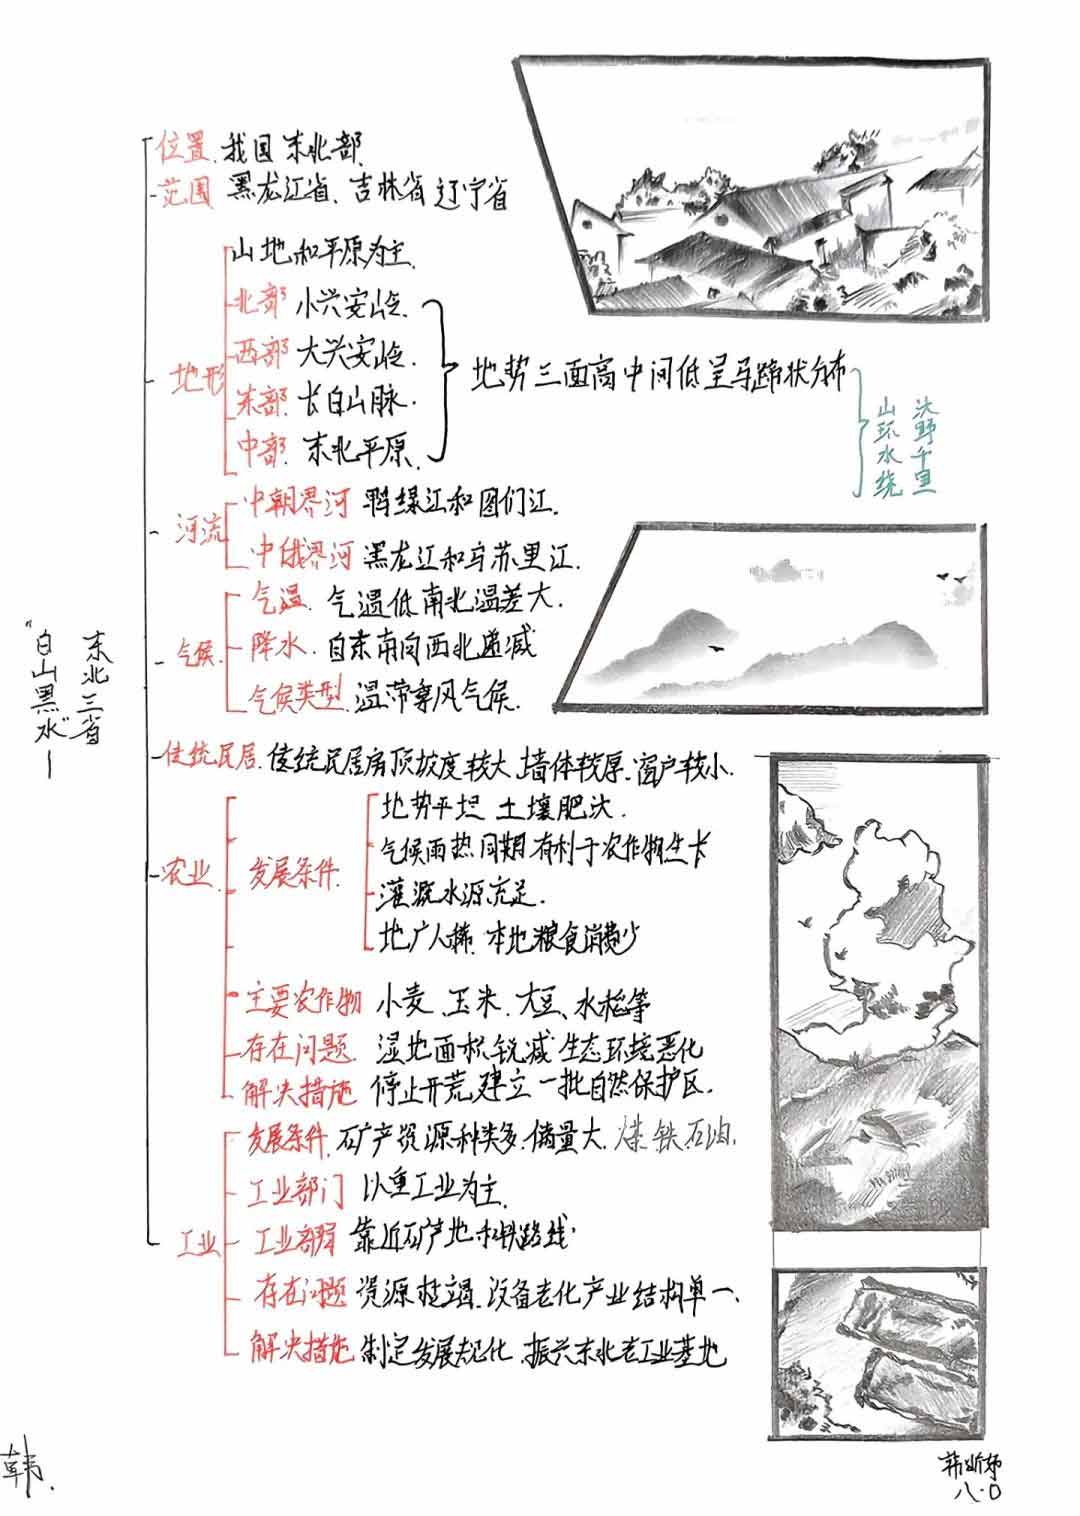 东北三省
"白山黑水"
位置 我国东北部
范围 黑龙江省、吉林省 辽宁省
地形
山地和平原为主
北部 小兴安岭
西部 大兴安岭
东部 长白山脉
中部 东北平原
地势三面高中间低呈马蹄状分布
山环水绕
沃野千里
河流
中朝界河 鸭绿江和图们江
中俄界河 黑龙江和乌苏里江
气候
气温 气温低南北温差大
降水 自东南向西北递减
气候类型 温带季风气候
传统民居 传统民居房顶坡度较大 墙体较厚 窗户较小
农业
发展条件
地势平坦 土壤肥沃
气候雨热同期有利于农作物生长
灌溉水源充足
地广人稀 本地粮食消费少
主要农作物 小麦、玉米、大豆、水稻等
存在问题 湿地面积锐减 生态环境恶化
解决措施 停止开荒 建立一批自然保护区
工业
发展条件 矿产资源种类多 储量大 煤 铁 石油
工业部门 以重工业为主
工业 靠近矿产地和铁路线
存在问题 资源枯竭 设备老化 产业结构单一
解决措施 制定发展规化 振兴东北老工业基地
韩
八·0